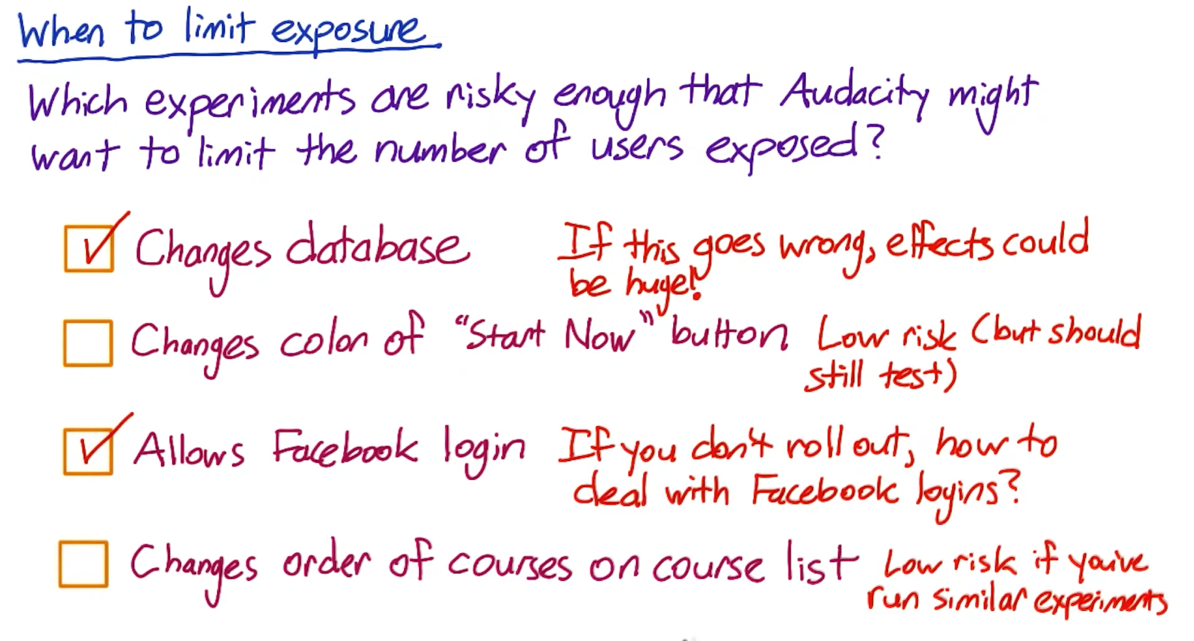 When to limit exposure
Which experiments are risky enough that Audacity might
want to limit the number of users exposed?
Changes database
If this goes wrong, effects could
be huge!
Changes color of "Start Now" button
Low risk (but should
still test)
Allows Facebook login
If you don't roll out, how to
deal with Facebook logins?
Changes order of courses on course list
Low risk if you've
run similar experiments